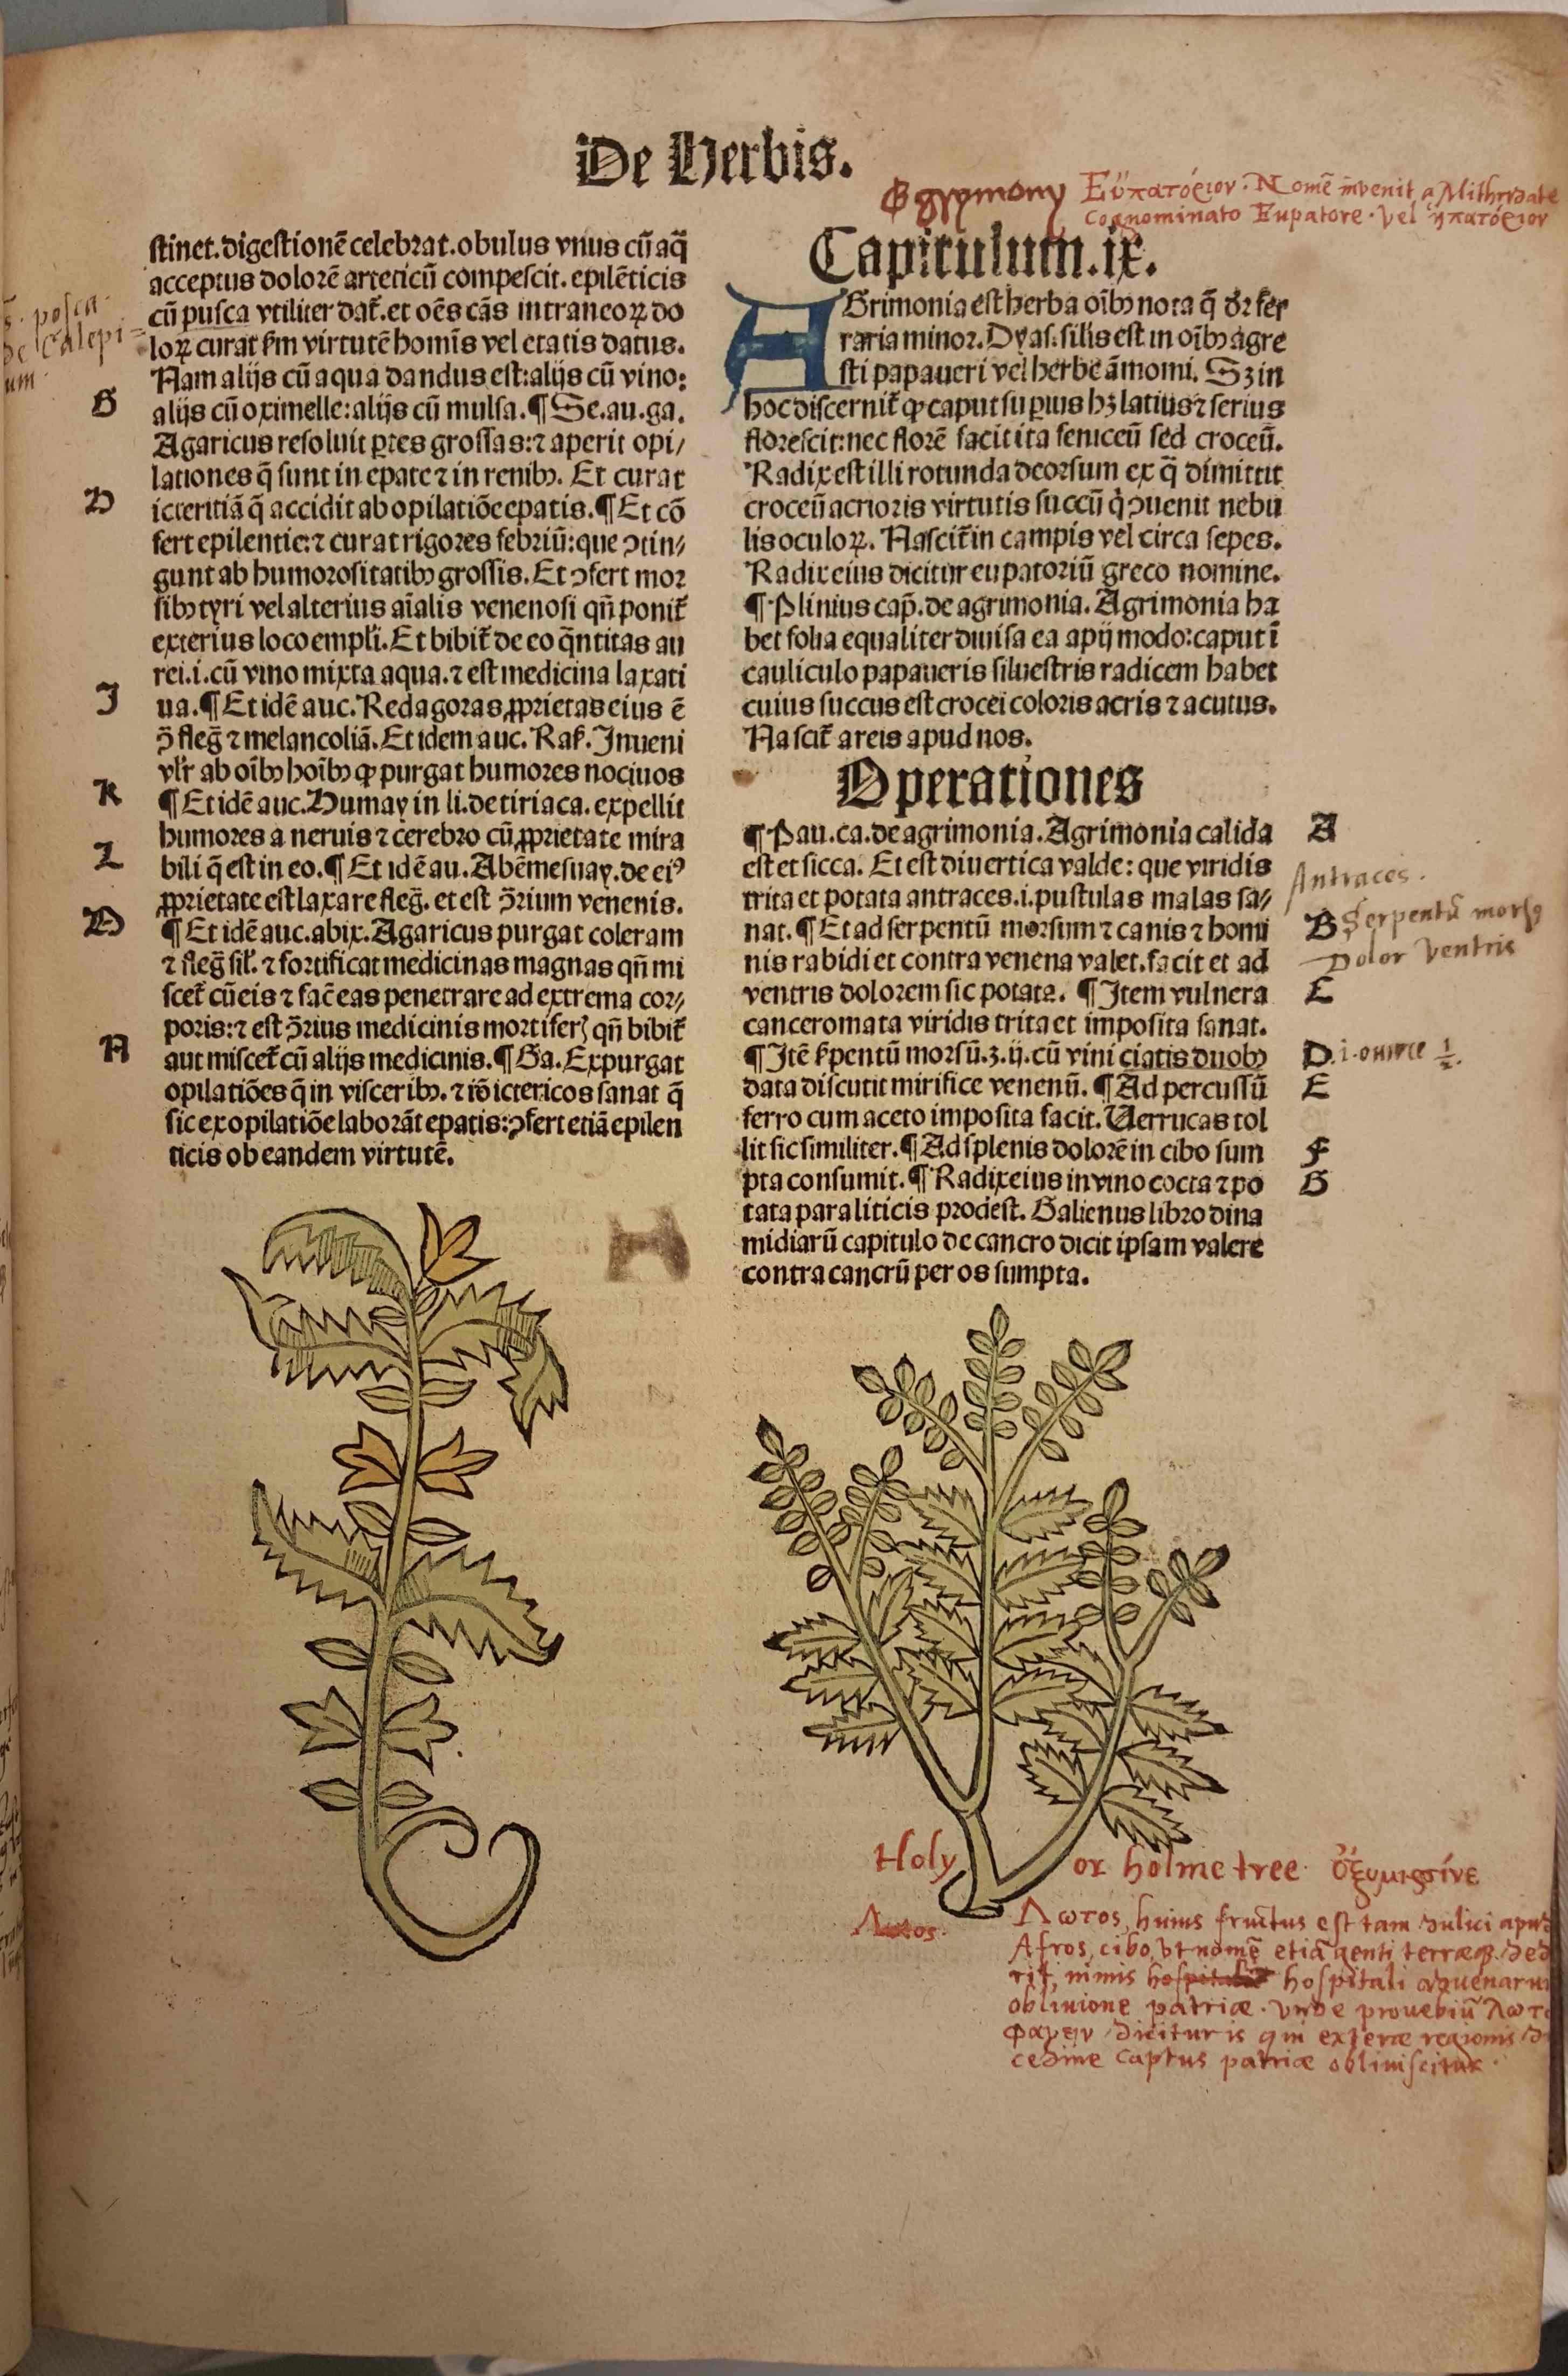 De Herbis.
Egrymony Εὐπατόριον. Nomẽ invenit a Mithridate
cognominato Eupatore. vel ἡπατόριον
stinet.digestionẽ celebrat.obulus vnus cũ aq̃
acceptus dolorẽ arteticũ compescit. epilẽticis
cũ pusca vtiliter dat̃.et oẽs cãs intraneoꝝ do
loꝝ curat ẜm virtutẽ homis vel etatis datus.
Nam alijs cũ aqua dandus est:alijs cũ vino:
alijs cũ oximelle:alijs cũ mulsa.¶ Se.au.ga.
Agaricus resoluit ꝑtes grossas:⁊ aperit opi/
lationes q̃ sunt in epate ⁊ in renibꝫ. Et curat
icteritiã q̃ accidit ab opilatiõe epatis.¶ Et cõ
fert epilentie:⁊ curat rigores febriũ:que ↄtin/
gunt ab humorositatibꝫ grossis. Et ↄfert mor
sibꝫ tyri vel alterius aĩalis venenosi qñ ponit̃
exterius loco empl̃i. Et bibit̃ de eo q̃ntitas au
rei.i.cũ vino mixta aqua.⁊ est medicina laxati
ua.¶ Et idẽ auc. Redagoras ꝓprietas eius ẽ
ↄ̃ fleg̃ ⁊ melancoliã. Et idem auc. Raſ. Inueni
vl̃r ab oĩbꝫ hoĩbꝫ ꝙ purgat humores nociuos
¶ Et idẽ auc. Humay in li.de tiriaca. expellit
humores a neruis ⁊ cerebro cũ ꝓprietate mira
bili q̃ est in eo.¶ Et idẽ au. Abẽmesuay. de eiꝰ
ꝓprietate est laxare fleg̃. et est ↄ̃rium venenis.
¶ Et idẽ auc.abix. Agaricus purgat coleram
⁊ fleg̃ sil̃. ⁊ fortificat medicinas magnas qñ mi
scet̃ cũ eis ⁊ facẽ eas penetrare ad extrema cor/
poris:⁊ est ↄ̃rius medicinis mortifer qñ bibit̃
aut miscet̃ cũ alijs medicinis.¶ Ga. Expurgat
opilatiões q̃ in visceribꝫ. ⁊ iõ ictericos sanat q̃
sic ex opilatiõe laborãt epatis:ↄfert etiã epilen
ticis ob eandem virtutẽ.
posca
de Calepi
um
G
H
I
K
L
M
N
Capitulum.ix.
AGrimonia est herba oĩbꝫ nota q̃ dr̃ fer
raria minor. Dyas:silis est in oĩbꝫ agre
sti papaueri vel herbe ãmomi. Sꝫ in
hoc discernit̃ ꝙ caput suꝑius hꝫ latius ⁊ serius
florescit:nec florẽ facit ita feniceũ sed croceũ.
Radix est illi rotunda deorsum ex q̃ dimittit
croceũ acrioris virtutis succũ q̇ ↄuenit nebu
lis oculoꝝ. Nascit̃ in campis vel circa sepes.
Radix eius dicitur eupatoriũ greco nomine.
¶ Plinius cap̃. de agrimonia. Agrimonia ha
bet folia equaliter diuisa ea apij modo:caput ĩ
cauliculo papaueris siluestris radicem habet
cuius succus est crocei coloris acris ⁊ acutus.
Nascit̃ areis apud nos.
Operationes
¶ Pau. ca. de agrimonia. Agrimonia calida
est et sicca. Et est diuertica valde: que viridis
trita et potata antraces.i.pustulas malas sa/
nat.¶ Et ad serpentũ morsum ⁊ canis ⁊ homi
nis rabidi et contra venena valet.facit et ad
ventris dolorem sic potata. ¶ Item vulnera
canceromata viridis trita et imposita sanat.
¶ Itẽ ẜpentũ morsũ.ʒ.ij. cũ vini ciatis duobꝫ
data discutit mirifice venenũ.¶ Ad percussũ
ferro cum aceto imposita facit. Uerrucas tol
lit sic similiter.¶ Ad splenis dolorẽ in cibo sum
pta consumit.¶ Radix eius in vino cocta ⁊ po
tata paraliticis prodest. Galienus libro dina
midiarũ capitulo de cancro dicit ipsam valere
contra cancrũ per os sumpta.
A
Antraces.
B Serpentũ morsꝰ
Dolor ventris
C
D .i. ounce ½.
E
F
G
Holy or holme tree. ὀξυμυρσίνε
Λωτος.
Λωτος, huius fructus est tam dulici apud
Afros, cibo, vt nomẽ etiã genti terræqꝫ ded
rit, nimis hospitali aduenarum
obliuione patriæ. vnde prouebiũ λωτο
φαγειν dicitur is qui exteræ regionis d
cedine captus patriæ obliuiscitur.